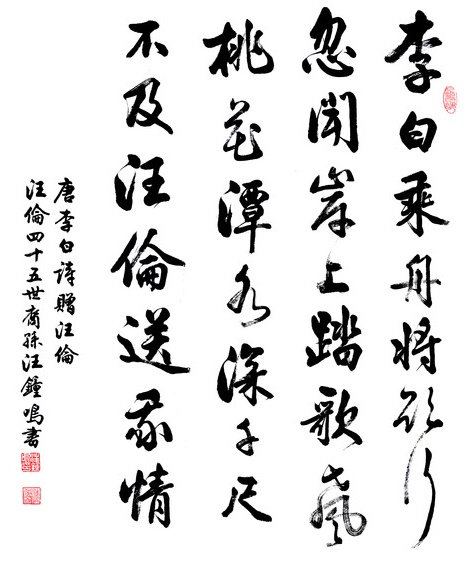 李白乘舟将欲行
忽聞岸上踏歌聲
桃花潭水深千尺
不及汪倫送我情
唐李白詩贈汪倫
汪倫四十五世裔孫汪鐘鳴書